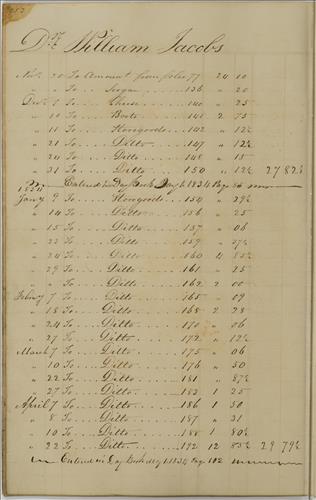 Dr. William Jacobs
Nov. 20 To Amount from folio 77 24 10
" " To Sugar 136 " 20
Dec. 1 To Cheese 140 " 25
" 10 To Boots 142 2 75
" 11 To Horegoods 142 " 12½
" 21 To Ditto 147 " 12½
" 24 To Ditto 148 " 15
" 31 To Ditto 150 " 12½ 27 82½
Entered in Day Book 1834 Page
Jany 9 To 154 " 29½
" 14 To Ditto 156 " 25
" 15 To Ditto 157 " 06
" 23 To Ditto 159 " 37½
" 24 To Ditto 160 4 85½
" 29 To Ditto 161 " 25
" " To Ditto 162 2 00
Febuy 7 To Ditto 165 " 09
" 18 To Ditto 168 2 28
" 24 To Ditto 170 " 06
" 27 To Ditto 172 " 12½
March 7 To Ditto 175 " 06
" 10 To Ditto 176 " 50
" 22 To Ditto 181 " 87½
" 27 To Ditto 183 1 25
April 7 To Ditto 186 1 50
" 8 To Ditto 187 " 31
" 10 To Ditto 188 1 80½
" 22 To Ditto 192 12 85½ 29 79½
Entered in Day Book 1834 Page 192